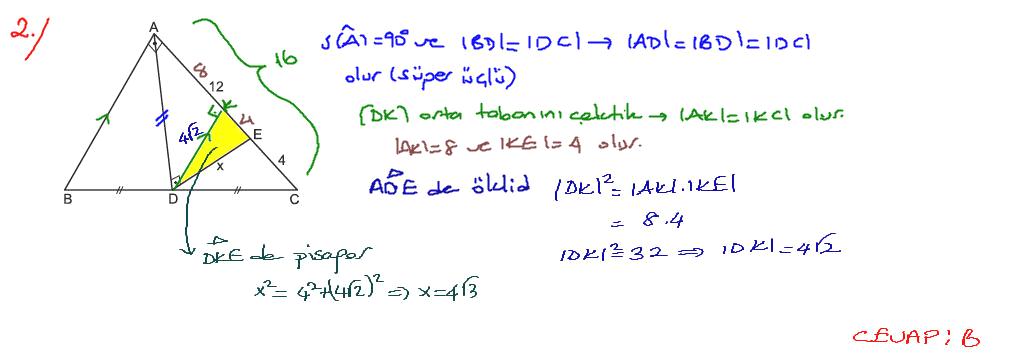 2./
A
B
D
C
E
K
8
12
4
4
16
4√2
x
s(Â)=90° ve |BD|=|DC| → |AD|=|BD|=|DC|
olur (süper üçlü)
[DK] orta tabanını çektik → |AK|=|KC| olur.
|AK|=8 ve |KE|=4 olur.
ADE de öklid |DK|²=|AK|.|KE|
= 8.4
|DK|²=32 ⇒ |DK|=4√2
DKE de pisagor
x²=4²+(4√2)² ⇒ x=4√3
CEVAP: B